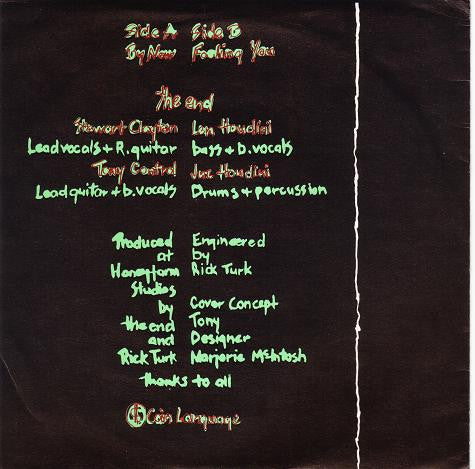 Side A Side B
By Now Feeling You
The end
Stewart Clayton Len Houdini
Lead vocals + R. guitar bass + b. vocals
Tony Control Joe Houdini
Lead guitar + b. vocals Drums + percussion
Produced Engineered
at by
Honeyfarm Rick Turk
Studios
by Cover Concept
the end Tony
and Designer
Rick Turk Marjorie McIntosh
thanks to all
Coin Language